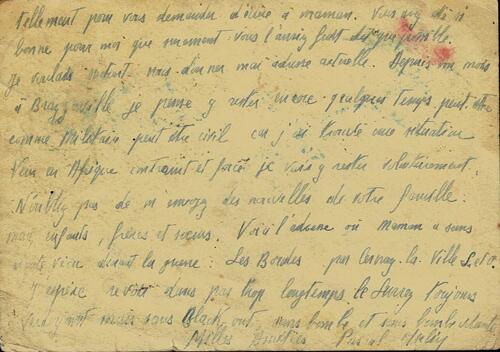 tellement pour vous demander d'écrire à maman. Vous avez été si
bonne pour moi que vraiment vous l'aurez fait dès que possible.
Je voulais surtout vous donner mon adresse actuelle. Depuis un mois
à Brazzaville je pense y rester encore quelques temps peut-être
comme militaire peut être civil car j'ai trouvé une situation
Venu en Afrique contraint et forcé je vais y rester volontairement.
N'oubliez pas de m'envoyer des nouvelles de votre famille.
mari, enfants, frères et soeurs. Voici l'adresse où Maman a sans
doute vécu durant la guerre: Les Bordes par Cernay-la-Ville S. et O.
J'espère revoir dans pas trop longtemps le Surrey toujours
vert mais sans Black out sans bombe et sans bombardement
Milles Amitiés Pascal